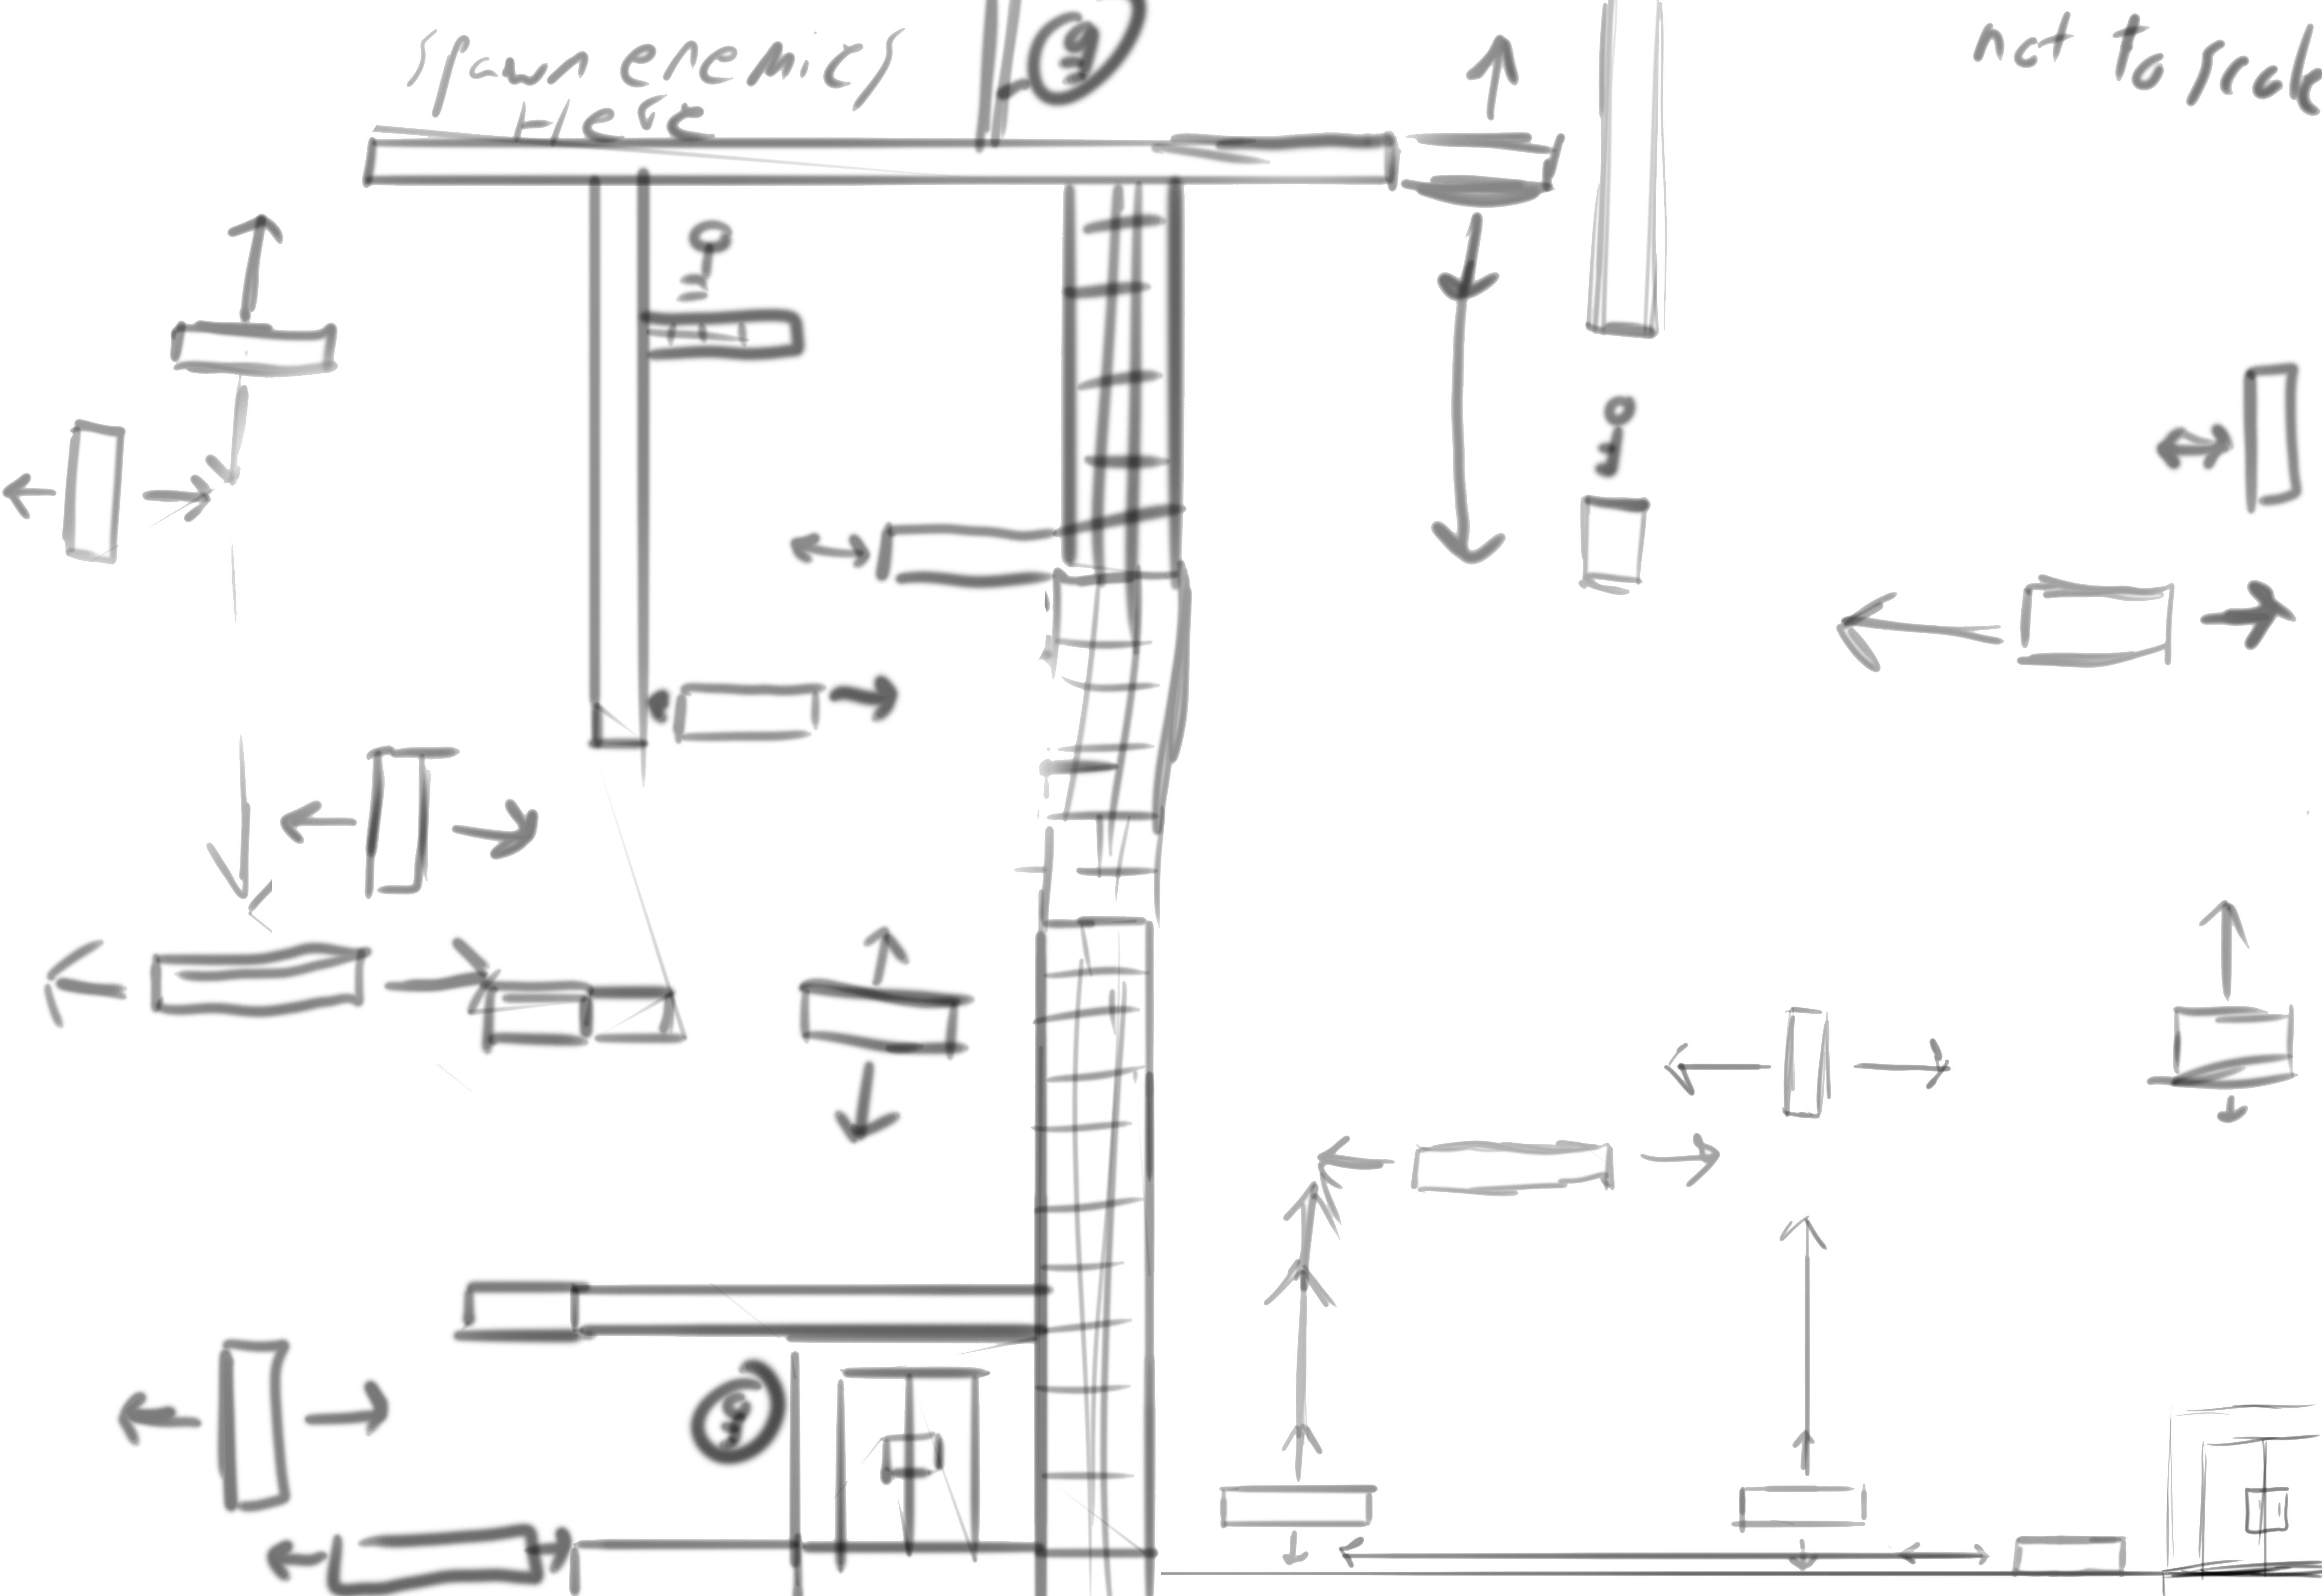 {spawn enemies
here
not to scale